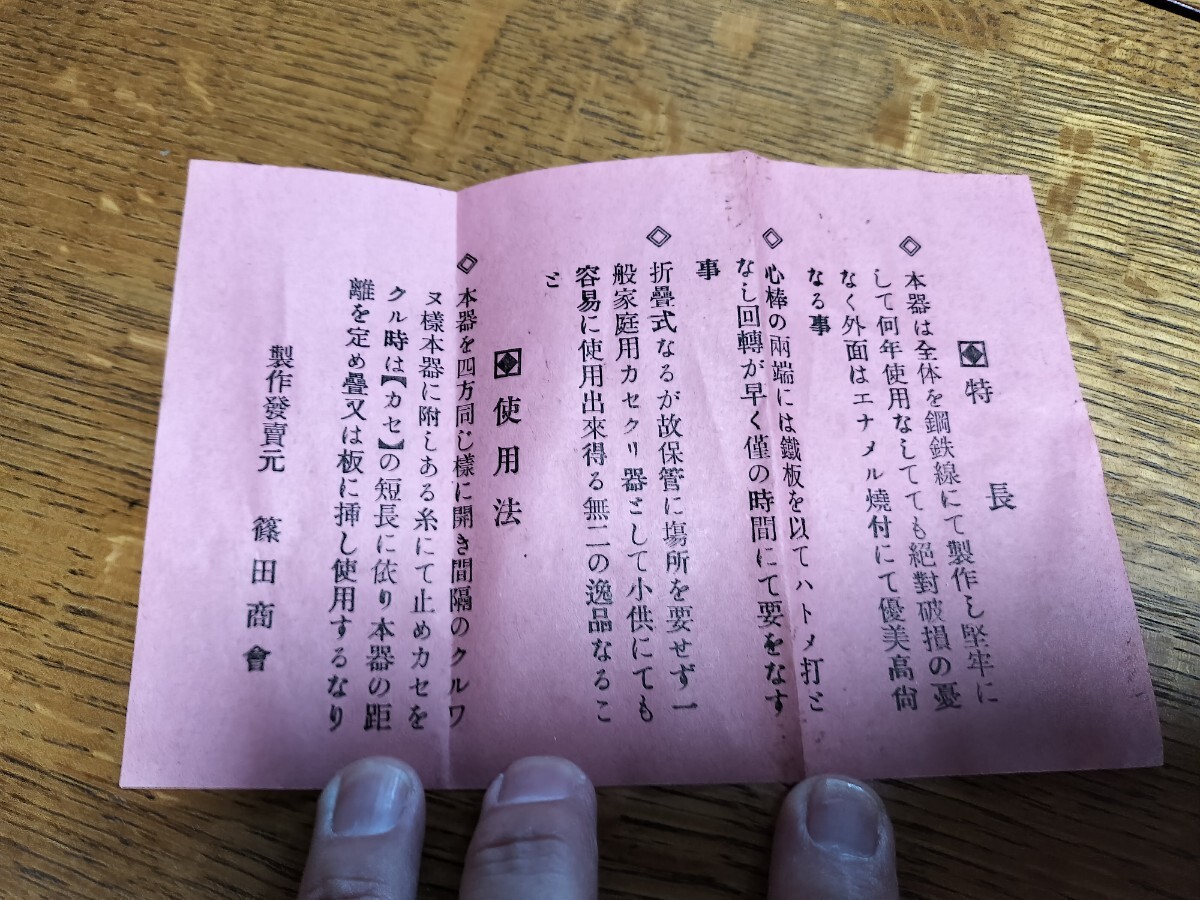 特長
◇本器は全体を鋼鉄線にて製作し堅牢に
して何年使用なしてても絕對破損の憂
なく外面はエナメル燒付にて優美高尙
なる事
◇心棒の兩端には鐵板を以てハトメ打と
なし回轉が早く僅の時間にて要をなす
事
◇折疊式なるが故保管に塲所を要せず一
般家庭用カセクリ器として小供にても
容易に使用出來得る無二の逸品なるこ
と
使用法
◇本器を四方同じ樣に開き間隔のクルワ
ヌ樣本器に附しある糸にて止めカセを
クル時は【カセ】の短長に依り本器の距
離を定め疊又は板に挿し使用するなり
製作發賣元 篠田商會